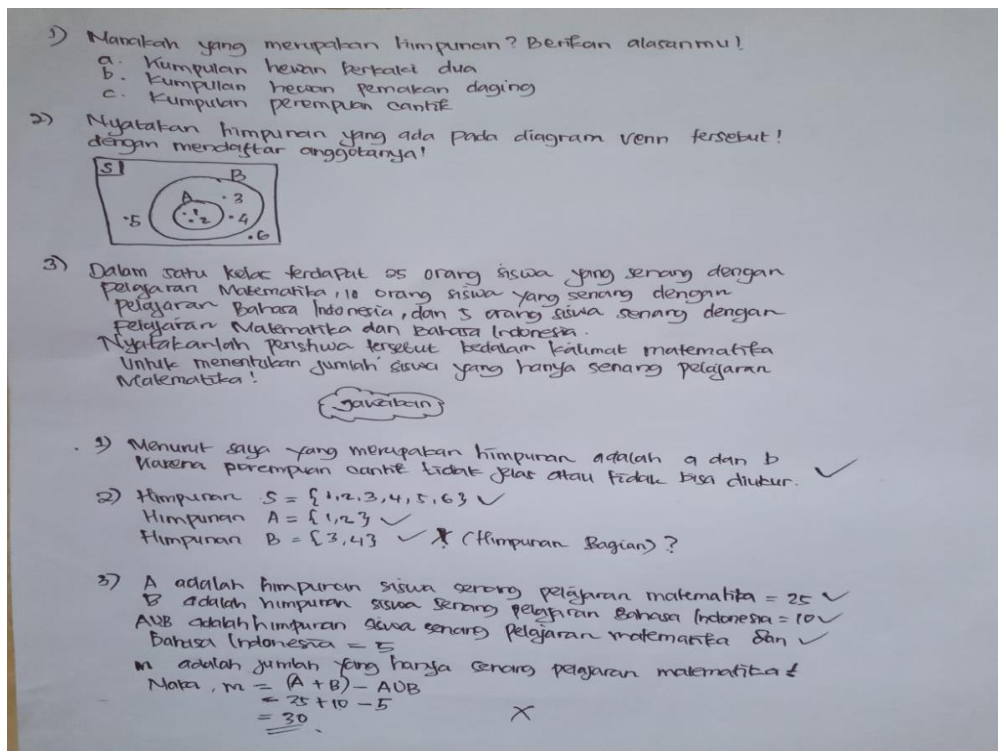 1) Manakah yang merupakan himpunan? Berikan alasanmu!
a. Kumpulan hewan berkaki dua
b. Kumpulan hewan pemakan daging
c. Kumpulan perempuan cantik
2) Nyatakan himpunan yang ada pada diagram venn tersebut!
dengan mendaftar anggotanya!
S
B
A
.3
.1
.2
.4
.5
.6
3) Dalam satu kelas terdapat 25 orang siswa yang senang dengan
pelajaran Matematika, 10 orang siswa yang senang dengan
pelajaran Bahasa Indonesia, dan 5 orang siswa senang dengan
pelajaran Matematika dan Bahasa Indonesia.
Nyatakanlah peristiwa tersebut kedalam kalimat matematika
Untuk menentukan jumlah siswa yang hanya senang pelajaran
Matematika!
Jawaban
1) Menurut saya yang merupakan himpunan adalah a dan b
Karena perempuan cantik tidak jelas atau tidak bisa diukur. ✓
2) Himpunan S = {1,2,3,4,5,6} ✓
Himpunan A = {1,2} ✓
Himpunan B = {3,4} ✓ X (Himpunan Bagian) ?
3) A adalah himpunan siswa senang pelajaran matematika = 25 ✓
B adalah himpunan siswa senang pelajaran Bahasa Indonesia = 10 ✓
AUB adalah himpunan siswa senang pelajaran matematika dan ✓
Bahasa Indonesia = 5
m adalah jumlah yang hanya senang pelajaran matematika
Maka, m = (A + B) - AUB
= 25 + 10 - 5
= 30 X